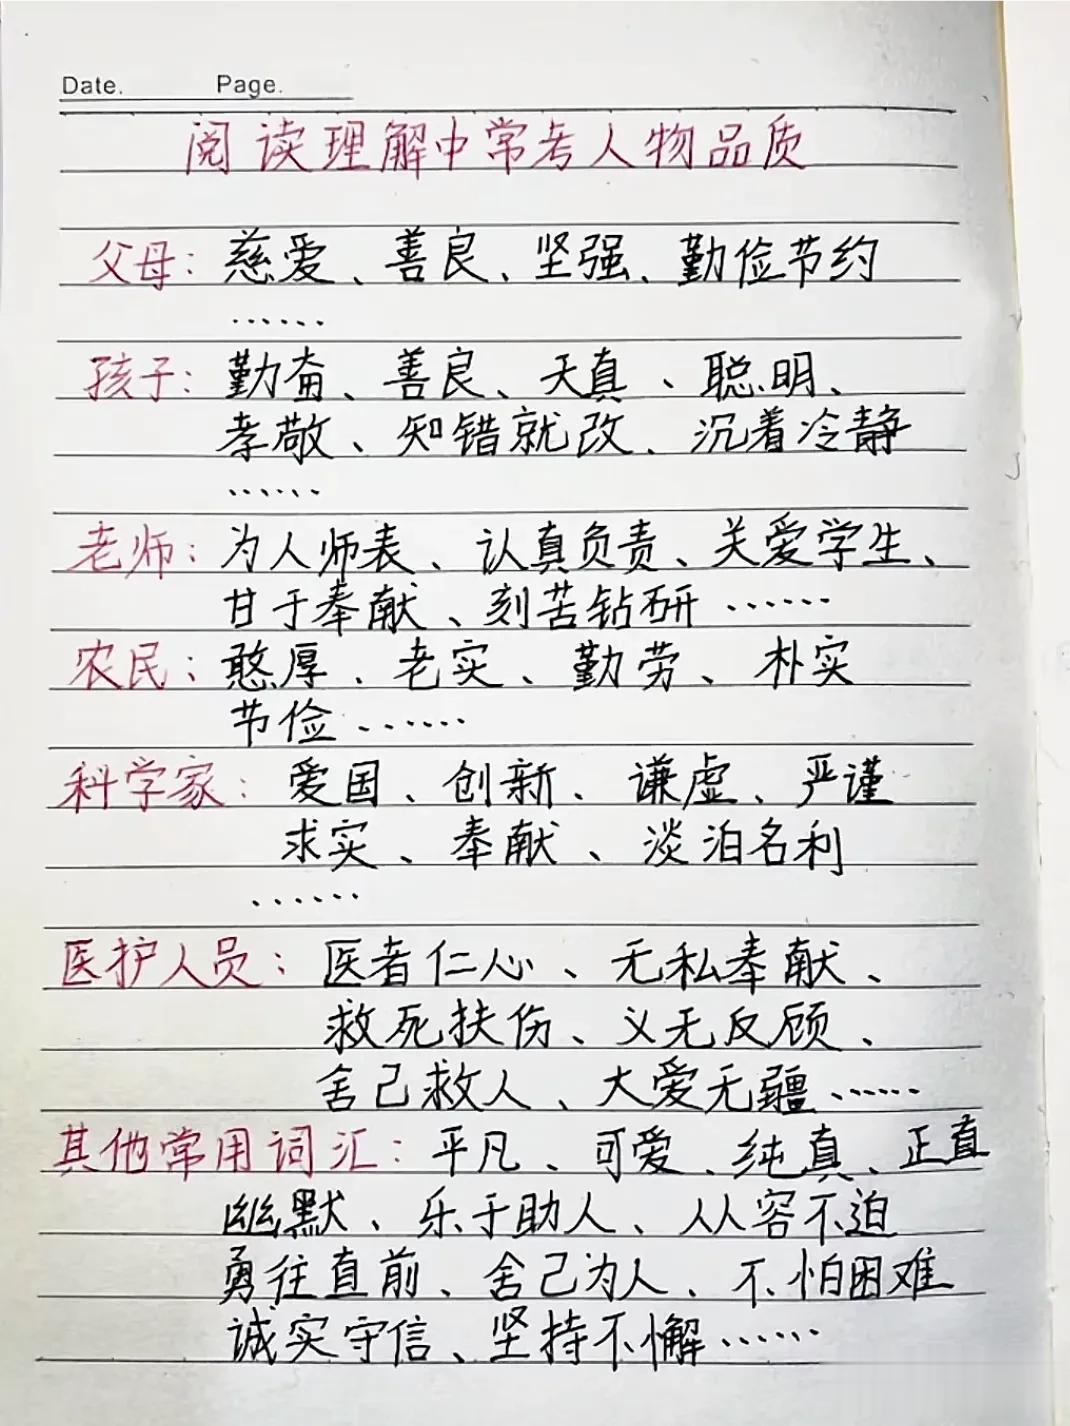 Date. Page.
阅读理解中常考人物品质
父母：慈爱、善良、坚强、勤俭节约
……
孩子：勤奋、善良、天真、聪明、
孝敬、知错就改、沉着冷静
……
老师：为人师表、认真负责、关爱学生、
甘于奉献、刻苦钻研……
农民：憨厚、老实、勤劳、朴实
节俭……
科学家：爱国、创新、谦虚、严谨
求实、奉献、淡泊名利
……
医护人员：医者仁心、无私奉献、
救死扶伤、义无反顾、
舍己救人、大爱无疆……
其他常用词汇：平凡、可爱、纯真、正直
幽默、乐于助人、从容不迫
勇往直前、舍己为人、不怕困难
诚实守信、坚持不懈……